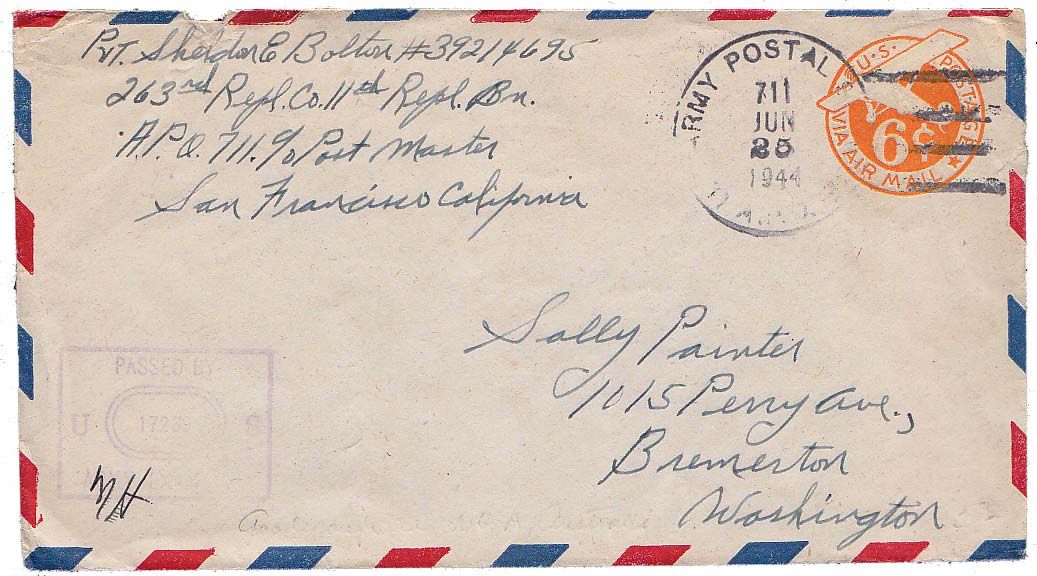 Pvt. Sheldon E Bolton #39214695
263rd Repl. Co. 11th Repl. Bn.
A.P.O. 711. c/o Post Master
San Francisco California
ARMY POSTAL
711
JUN
25
1944
U.S. POSTAGE
6¢
VIA AIR MAIL
Sally Painter
1015 Perry Ave.,
Bremerton
Washington
PASSED BY
U S